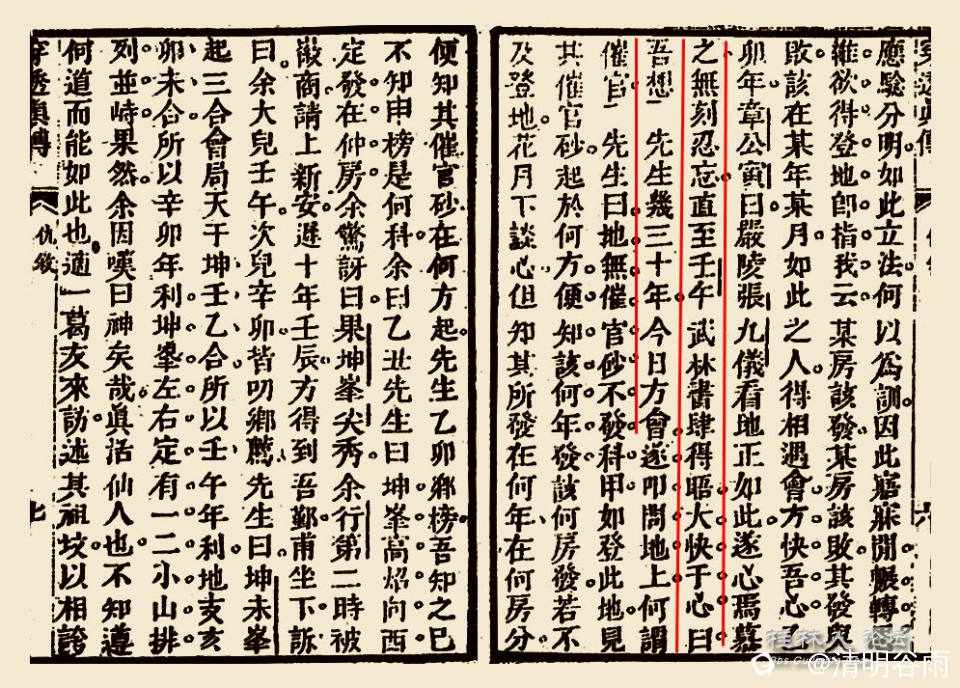 應驗分明如此立法何以為訓因此寤寐間輾轉
維欲得登地即指我云某房該發某房該敗其發與
敗該在某年某月如此之人得相遇會方快吾心乙
卯年章公寅曰嚴陵張九儀看地正如此遂心焉慕
之無刻忍忘直至壬午武林書肆得晤大快于心曰
吾想先生幾三十年今日方會遂叩問地上何謂
催官先生曰地無催官砂不發科甲如登此地見
其催官砂起於何方便知該何年發該何房發若不
及登地花月下談心但知其所發在何年在何房分
便知其催官砂在何方起先生乙卯鄉榜吾知之已
不知申榜是何科余曰乙丑先生曰坤峯高焰向西
定發在仲房余驚訝曰果坤峯尖秀余行第二時被
嚴商請上新安遲十年壬辰方得到吾鄞甫坐下訴
曰余大兒壬午次兒辛卯皆叨鄉薦先生曰坤未峯
起三合會局天干坤壬乙合所以壬午年利地支亥
卯未合所以辛卯年利坤峯左右定有一二小山排
列並峙果然余因嘆曰神矣哉真活仙人也不知遵
何道而能如此也適一葛友來訪述其祖墳以相誇
穿透真傳
仇敘
七
桂林人论坛
@清明谷雨